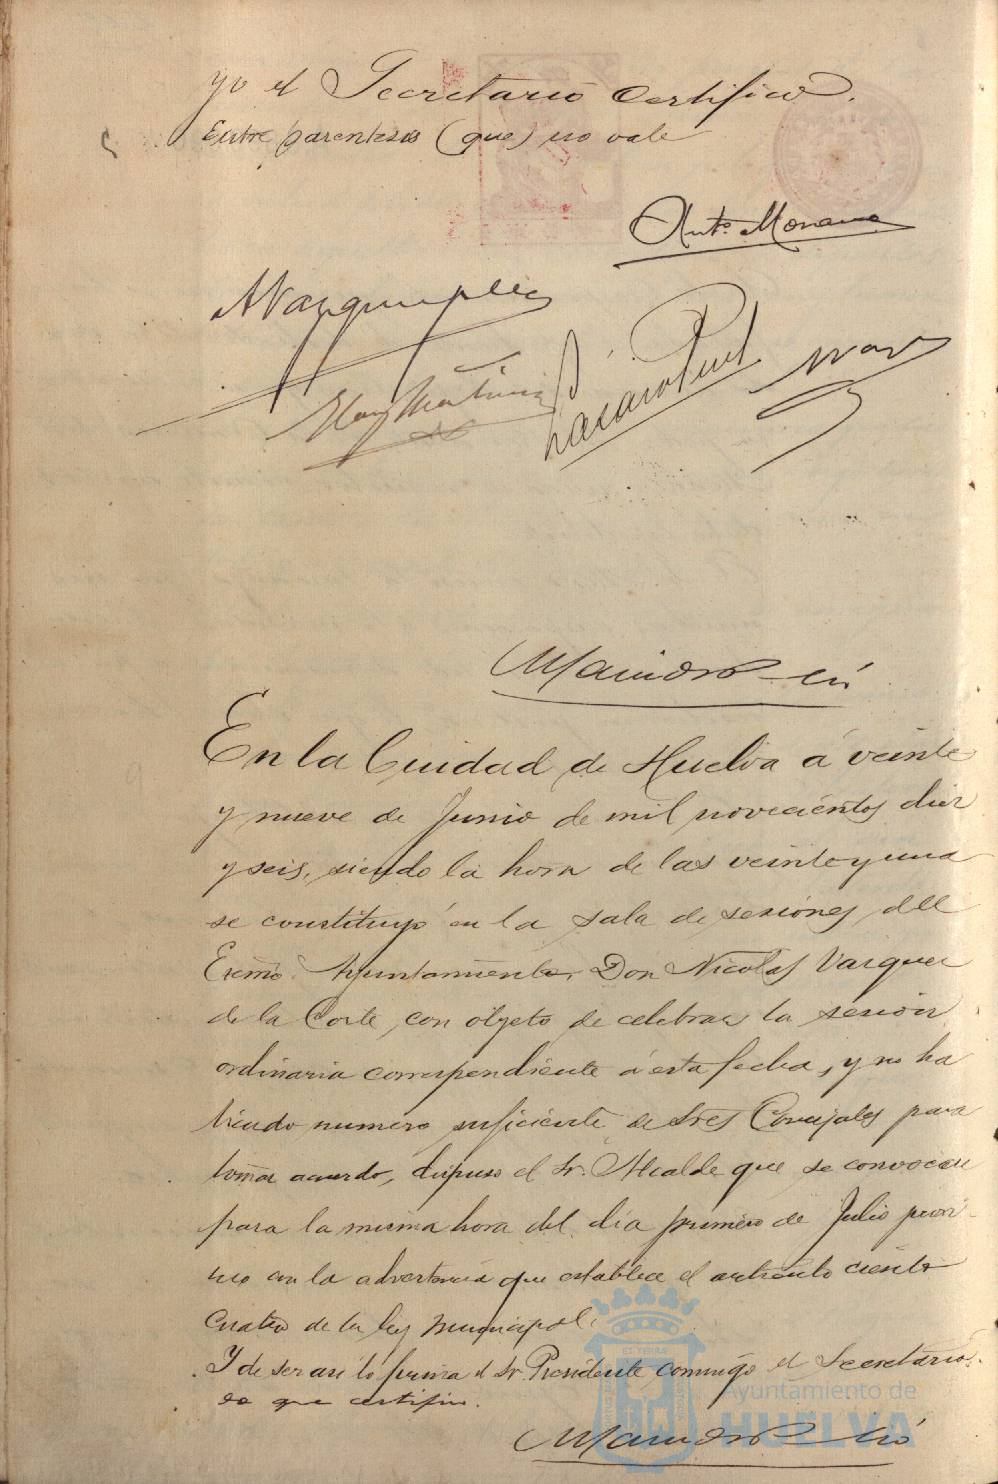 yo el Secretario certifico.
Entre parentesis (que) no vale
Antº. Monano
En la Ciudad de Huelva á veinte
y nueve de Junio de mil novecientos diez
y seis, siendo la hora de las veinte y una
se constituyó en la sala de sesiones dell
Excmo. Ayuntamiento, Don Nicolas Vazquez
de la Corte, con objeto de celebrar la sesion
ordinaria correspondiente á esta fecha, y no ha
biendo numero suficiente de Sres Concejales para
tomar acuerdo, dispuso el Sr. Alcalde que se convocase
para la misma hora del dia primero de Julio proxi-
mo con la advertencia que establece el articulo ciento
cuatro de la ley municipal.
Y de ser asi lo firma el Sr. Presidente conmigo el Secretario
de que certifico.
Ayuntamiento de
HUELVA